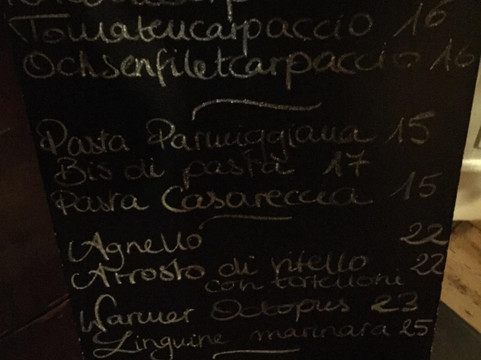 Tomatencarpaccio 16
Ochsenfiletcarpaccio 16
Pasta Parmiggiana 15
Bis di pasta 17
Pasta Casareccia 15
Agnello 22
Arrosto di vitello 22
con tortelloni
Warmer Octopus 23
Linguine marinara 25